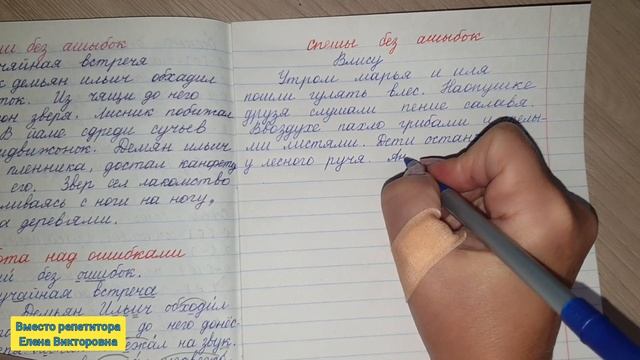 ши без ашыбок
чяйная встречя
к демьян ильич обхадил
ток. Из чящи до него
он зверя. Лисник побижал
В яме сдреди сучьев
движонок. Демян ильич
пленника, достал канфету
его. Звер сел лакомство
ливаясь с ноги на ногу,
а деревями.
ота над ошибками
й без ошибок.
учайная встреча
Демьян Ильич обходил
до него донёс-
ежал на звук.
спешы без ашыбок
Влису
Утром марья и иля
пошли гулять влес. Наопушке
друзя слушали пение салавя.
Ввоздухе пахло грибами и
ми листями. Дети остан
у лесного ручя. Ан
Вместо репетитора
Елена Викторовна